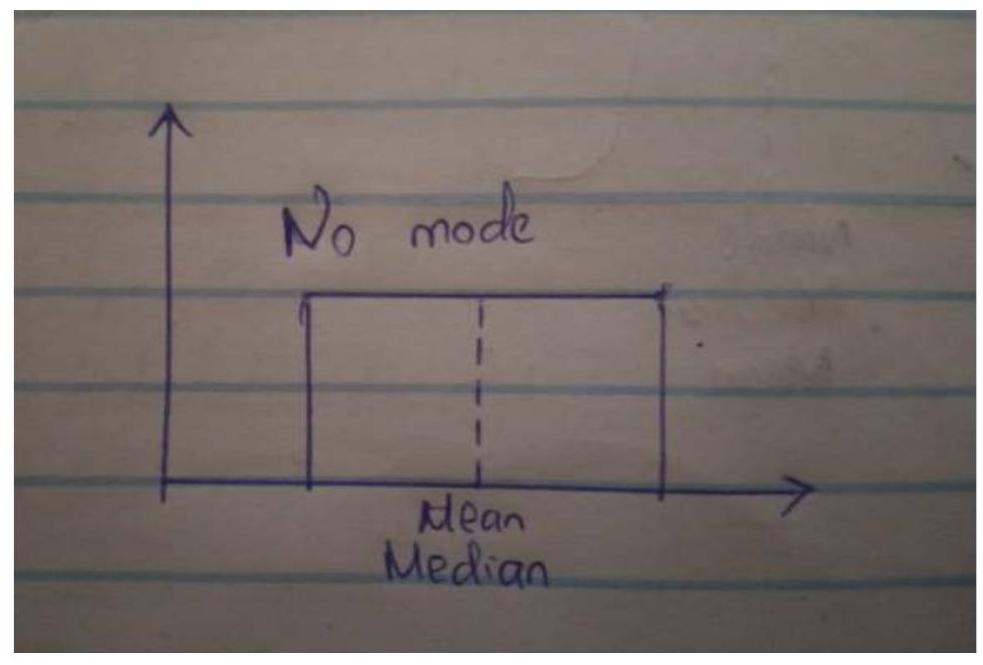 No mode
Mean
Median